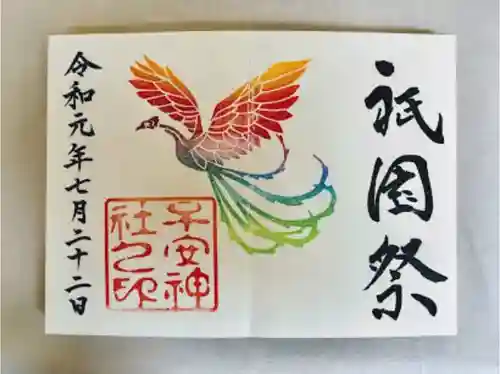 祇園祭
子安神
社之印
令和元年七月二十二日